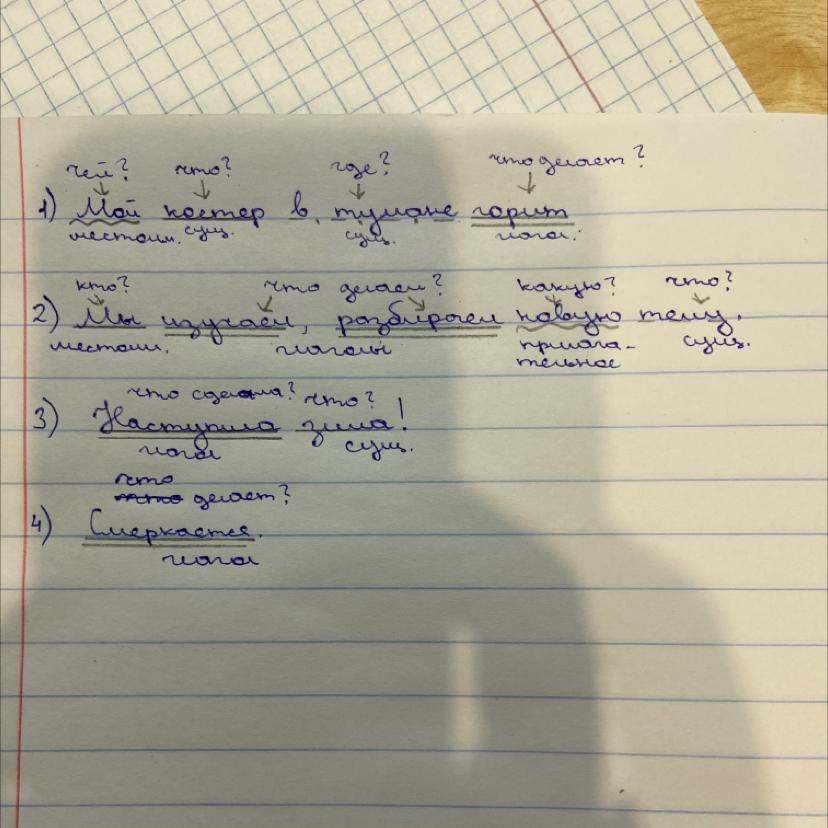 чей? что? где? что делает?
1) Мой костер в тумане горит
местоим. сущ. сущ. глагол.
кто? что делаем? какую? что?
2) Мы изучаем, разбираем новую тему.
местоим. глаголы прилага- сущ.
тельное
что сделала? что?
3) Наступила зима!
глагол сущ.
что
делает?
4) Смеркается.
глагол